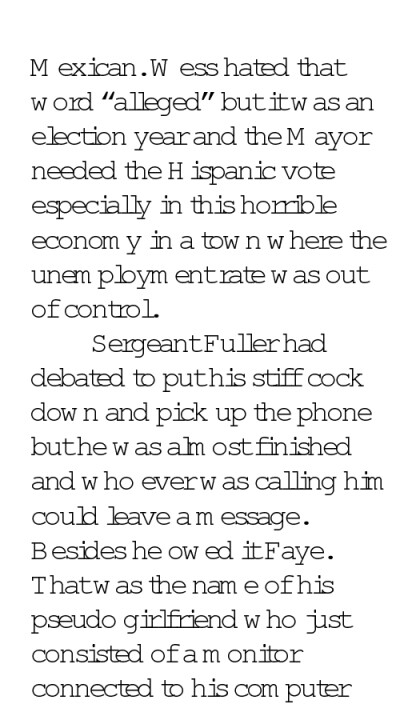 Mexican. Wess hated that
word “alleged” but it was an
election year and the Mayor
needed the Hispanic vote
especially in this horrible
economy in a town where the
unemployment rate was out
of control.
Sergeant Fuller had
debated to put his stiff cock
down and pick up the phone
but he was almost finished
and who ever was calling him
could leave a message.
Besides he owed it Faye.
That was the name of his
pseudo girlfriend who just
consisted of a monitor
connected to his computer